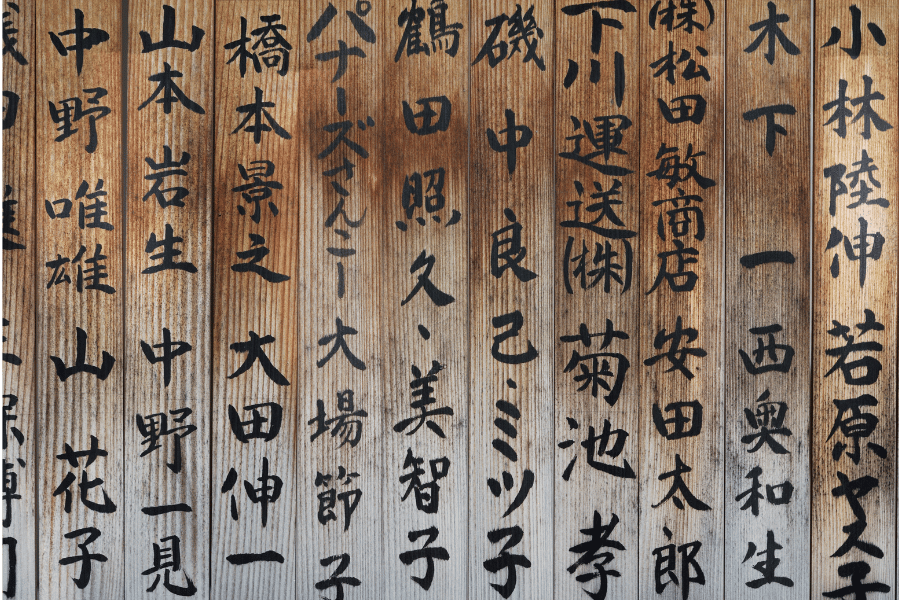 小林陸伸 若原ヤス子
木下 一 西奥和生
㈱松田敏商店 安田太郎
下川運送㈱ 菊池 孝
磯 中良己・ミツ子
鶴田照久、美智子
パナーズさんこー 大場節子
橋本景之 大田伸一
山本岩生 中野一見
中野唯雄 山 花子